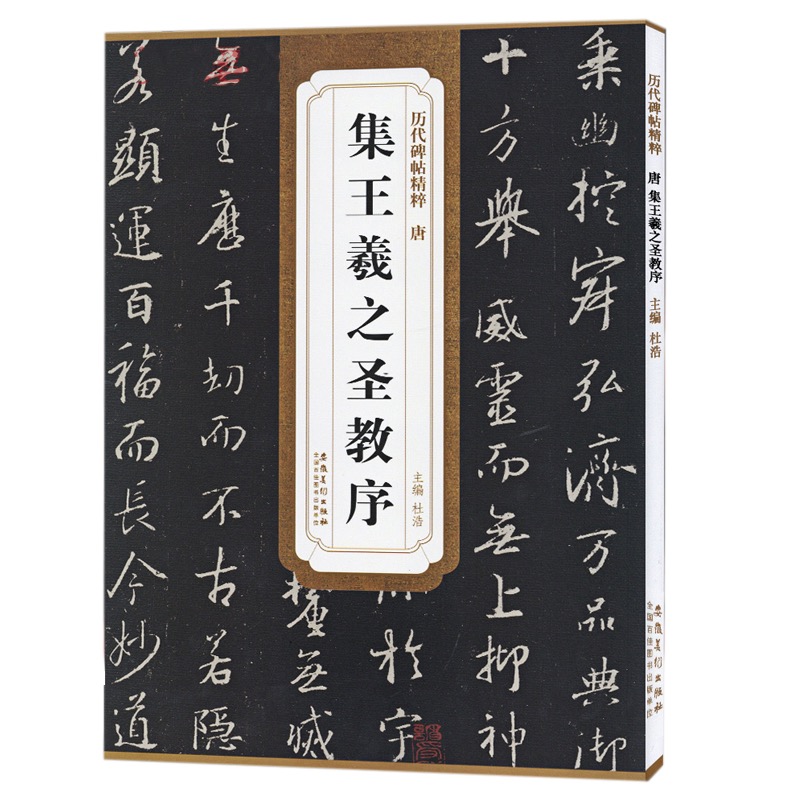 乘幽控寂弘濟万品典御
十方舉威靈而無上抑神
於宇
無滅
無生歷千劫而不古若隱
若顯運百福而長今妙道
历代碑帖精粹 唐
集王羲之圣教序
主编 杜浩
安徽美术出版社
全国百佳图书出版单位
历代碑帖精粹 唐 集王羲之圣教序 主编 杜浩
安徽美术出版社
全国百佳图书出版单位